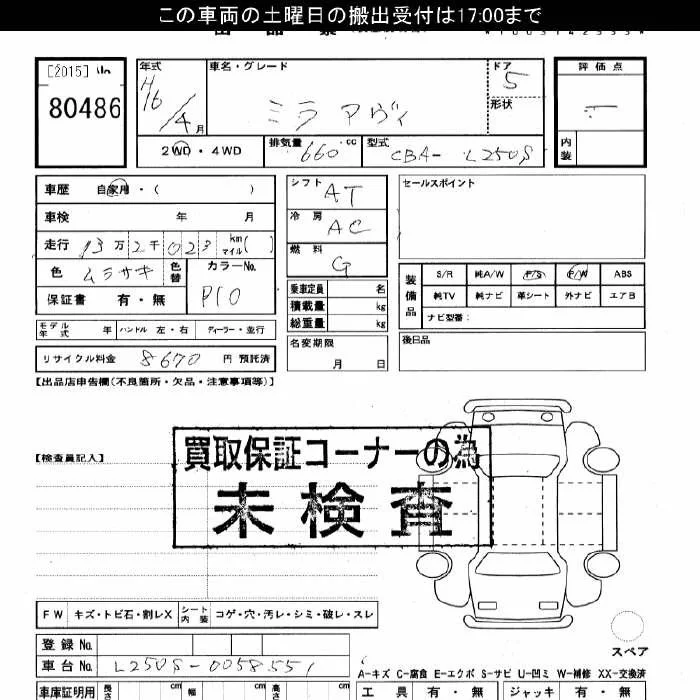 この車両の土曜日の搬出受付は17:00まで
[2015]
80486
年式 H16/4月
車名・グレード ミラ アヴィ
ドア 5
形状
評価点
内装
2WD・4WD
排気量 660 cc
型式 CBA-L250S
車歴 自家用・( )
車検 年 月
走行 13万2千023 km マイル( )
色 ムラサキ 色替
カラーNo. P10
保証書 有・無
モデル年式 年 ハンドル 左・右 ディーラー・並行
リサイクル料金 8670 円 預託済
シフト AT
冷房 AC
燃料 G
乗車定員 名
積載量 kg
総重量 kg
名変期限
月 日
セールスポイント
装備品
S/R 純A/W P/S P/W ABS
純TV 純ナビ 革シート 外ナビ エアB
ナビ型番:
後日品
【出品店申告欄(不良箇所・欠品・注意事項等)】
【検査員記入】
買取保証コーナーの為
未検査
FW キズ・トビ石・割レX シート内装 コゲ・穴・汚レ・シミ・破レ・スレ
スペア
登録No.
車台No. L250S-0058551
A-キズ C-腐食 E-エクボ S-サビ U-凹ミ W-補修 XX-交換済
車庫証明用 長さ cm 幅 cm 高さ cm
工具 有・無 ジャッキ 有・無